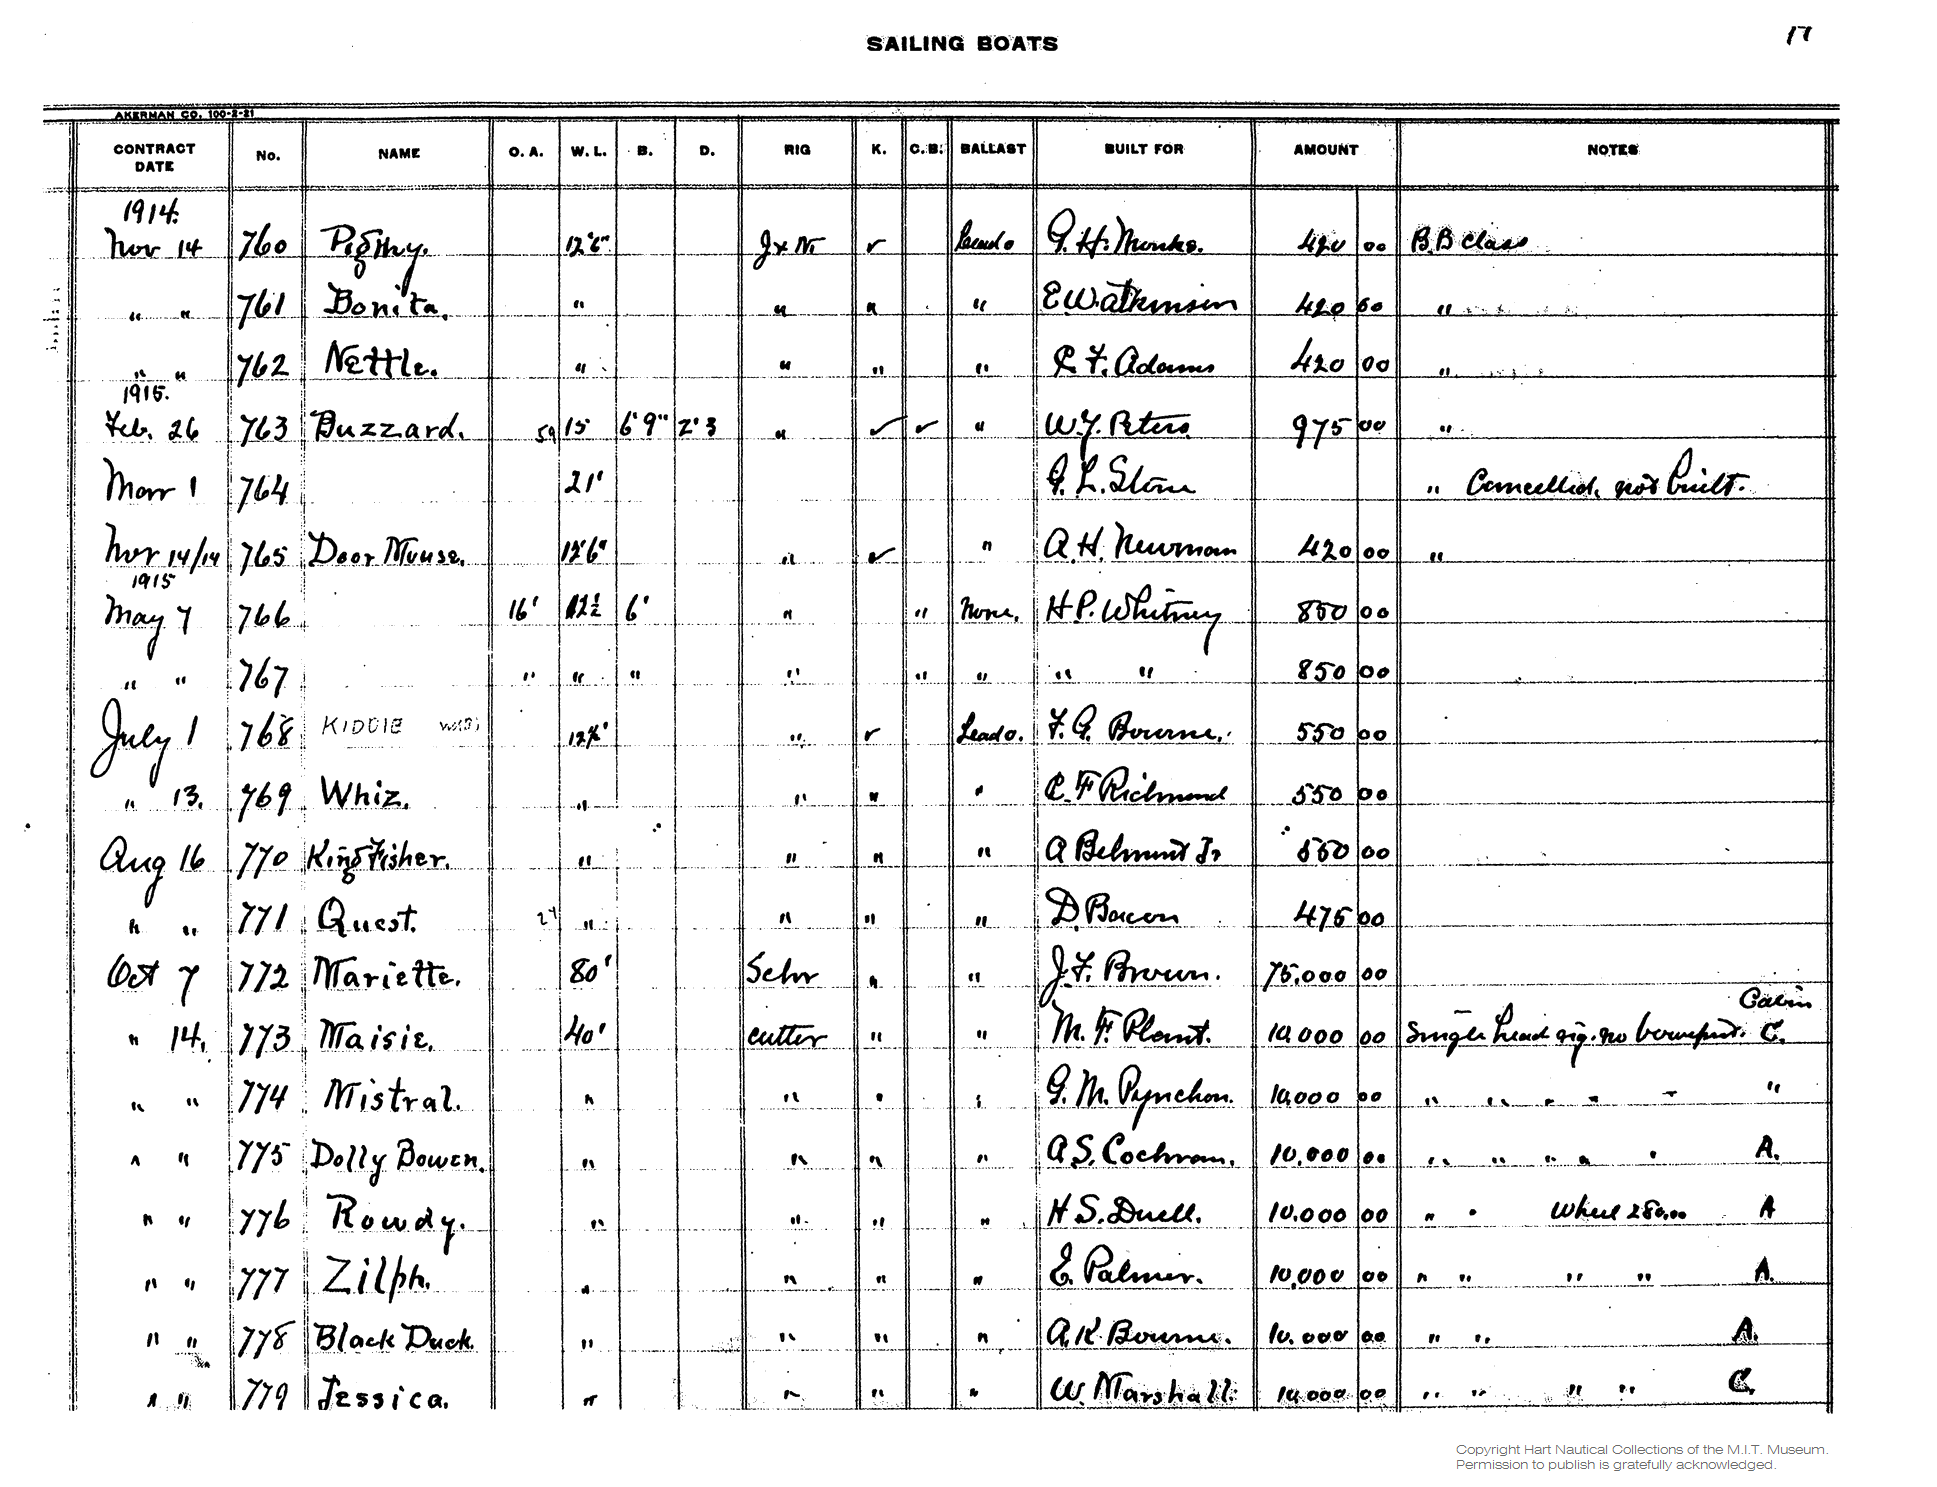 17
SAILING BOATS
AKERMAN CO. 100-2-21
CONTRACT DATE No. NAME O. A. W. L. B. D. RIG K. C. B. BALLAST BUILT FOR AMOUNT NOTES
1914.
Nov 14 760 Pigmy. 12'6" J & M ✓ Lead o G. H. Monks. 420 00 B.B class
" " 761 Bonita. " " " " E. W. Atkinson 420 00 "
" " 762 Nettle. " " " " C. F. Adams 420 00 "
1915.
Feb. 26 763 Buzzard. 15 6'9" 2'3 " ✓ ✓ " W. Y. Peters 975 00 "
Mar 1 764 21' G. L. Stone " Cancelled, not built.
Nov 14/14 765 Door Mouse. 12'6" " ✓ " A. H. Newman 420 00 "
1915
May 7 766 16' 12½ 6' " " None. H P. Whitney 850 00
" " 767 " " " " " " " " 850 00
July 1 768 KIDDIE 12½' " ✓ Lead o. F. G. Bourne. 550 00
" 13. 769 Whiz. " " " " C. F Richmond 550 00
Aug 16 770 King Fisher. " " " " A Belmont Jr 550 00
" " 771 Quest. " " " " D. Bacon 475 00
Oct 7 772 Mariette. 80' Schr " " J. F. Brown. 75,000 00
Cabin
" 14. 773 Maisie. 40' cutter " " M. F. Plant. 10,000 00 Single head rig. no bowsprit. C.
" " 774 Mistral. " " " " G. M. Pynchon. 10,000 00 " " " " " "
" " 775 Dolly Bowen. " " " " A. S. Cochran. 10,000 00 " " " " " A.
" " 776 Rowdy. " " " " H S. Duell. 10,000 00 " " Wheel 280.00 A
" " 777 Zilph. " " " " E. Palmer. 10,000 00 " " " " A.
" " 778 Black Duck. " " " " A. K. Bourne. 10,000 00 " " A.
" " 779 Jessica. " " " " W. Marshall 10,000 00 " " " " C.
Copyright Hart Nautical Collections of the M.I.T. Museum.
Permission to publish is gratefully acknowledged.